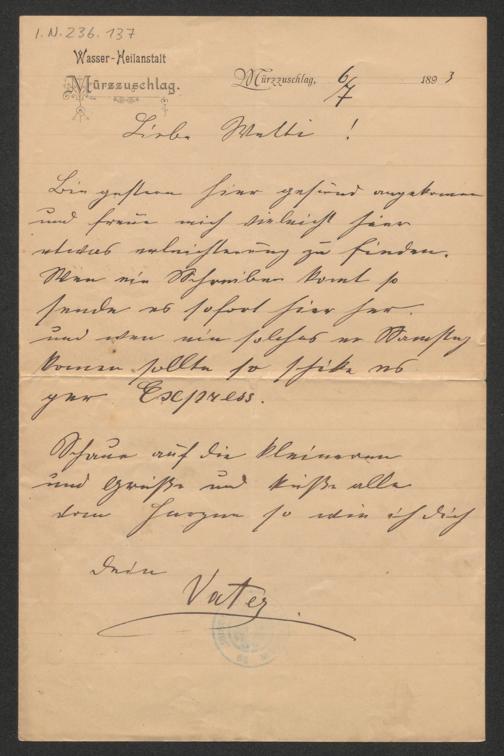 I.N. 236.137
Wasser-Heilanstalt
Mürzzuschlag.
Mürzzuschlag, 6/7 1893
Liebe Wetti !
Bin gestern hier gesund angekomen
und freue mich vieleicht hier
etwas erleichterung zu finden.
Wen ein Schreiben komt so
sende es sofort hier her.
und wen ein solches Samstag
komen sollte so schike es
per Express.
Schaue auf die kleineren
und Grüße und küße alle
vom Herzen so wie ich dich
dein
Vater.